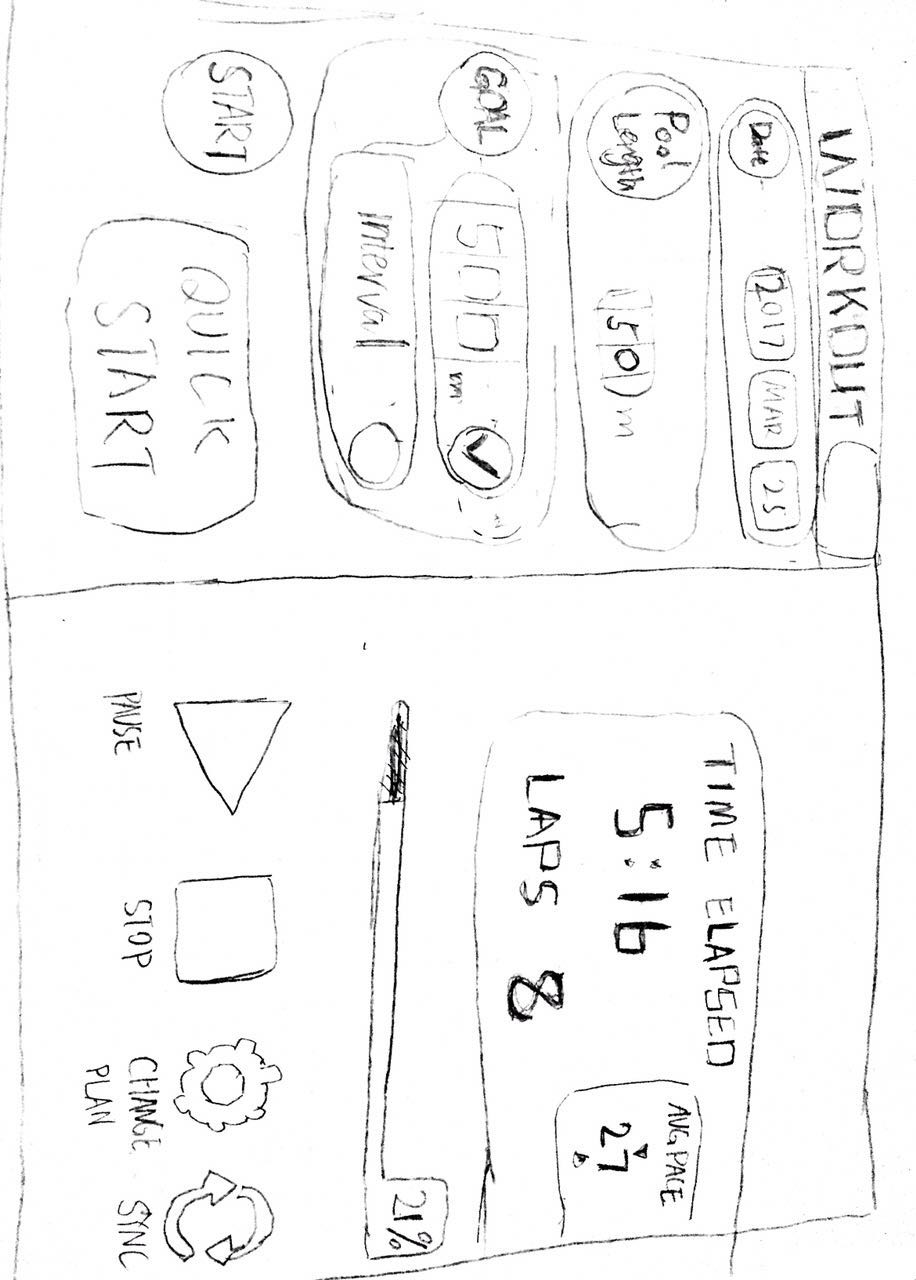 WORKOUT
Date 2017 MAR 25
Pool
Length
50 m
GOAL 500
Interval
START
QUICK
START
TIME ELAPSED
5:16
LAPS 8
AVG PACE
27
21%
PAUSE
STOP
CHANGE
PLAN
SYNC